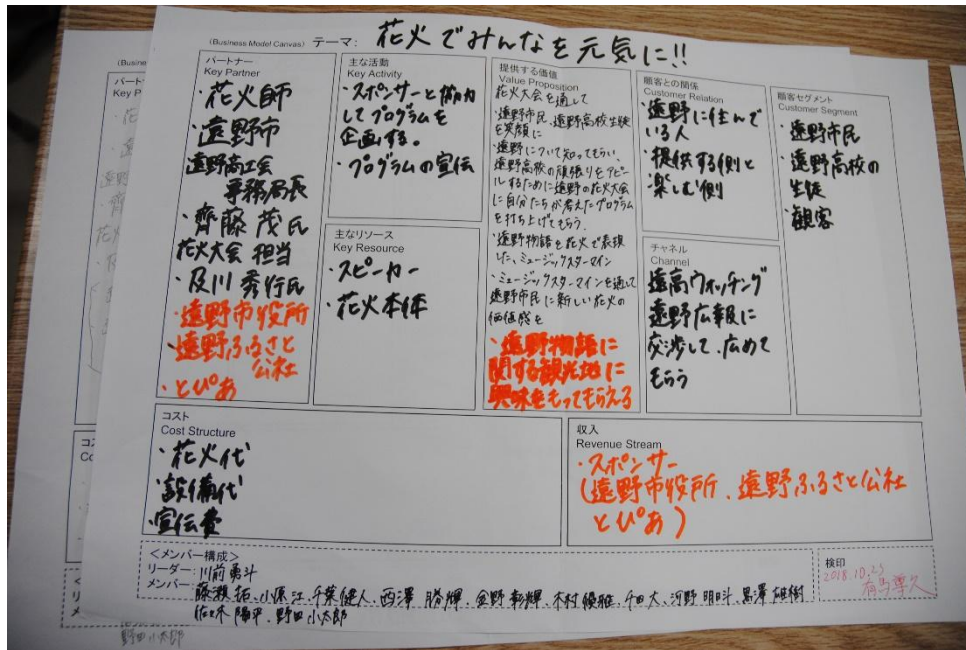 (Business Model Canvas) テーマ: 花火でみんなを元気に!!
パートナー
Key Partner
・花火師
・遠野市
遠野商工会
事務局長
・齊藤 茂氏
花火大会 担当
・及川 秀行氏
・遠野市役所
・遠野ふるさと
公社
・とぴあ
主な活動
Key Activity
・スポンサーと協力
してプログラムを
企画する。
・プログラムの宣伝
主なリソース
Key Resource
・スピーカー
・花火本体
提供する価値
Value Proposition
花火大会を通して
・遠野市民、遠野高校生徒
を笑顔に
・遠野について知ってもらい、
遠野高校の頑張りをアピー
ルするために遠野の花火大会
に自分たちが考えたプログラム
を打ち上げてもらう.
・遠野物語を花火で表現
した、ミュージックスターマイン
・ミュージックスターマインを通して
遠野市民に新しい花火の
価値感を
・遠野物語に
関する観光地に
興味をもってもらえる
顧客との関係
Customer Relation
・遠野に住んで
いる人
・提供する側と
楽しむ側
チャネル
Channel
遠高ウォッチング
遠野広報に
交渉して、広めて
もらう
顧客セグメント
Customer Segment
・遠野市民
・遠野高校の
生徒
・観客
コスト
Cost Structure
・花火代
・設備代
・宣伝費
収入
Revenue Stream
・スポンサー
(遠野市役所、遠野ふるさと公社
とぴあ)
<メンバー構成>
リーダー: 川前 勇斗
メンバー: 藤瀬 拓、小原 江、千葉 健人、西澤 勝輝、金野 彰輝、木村 優雅、千田 大、河野 明日斗、黒澤 雄樹
佐々木 陽平、野田 小太郎
検印
2018.10.23
有馬 尊久
野田 小太郎